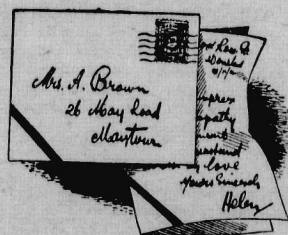 Mrs. A. Brown
26 May Road
Maytown
press
pathy
husband
love
Yours Sincerely
Helen